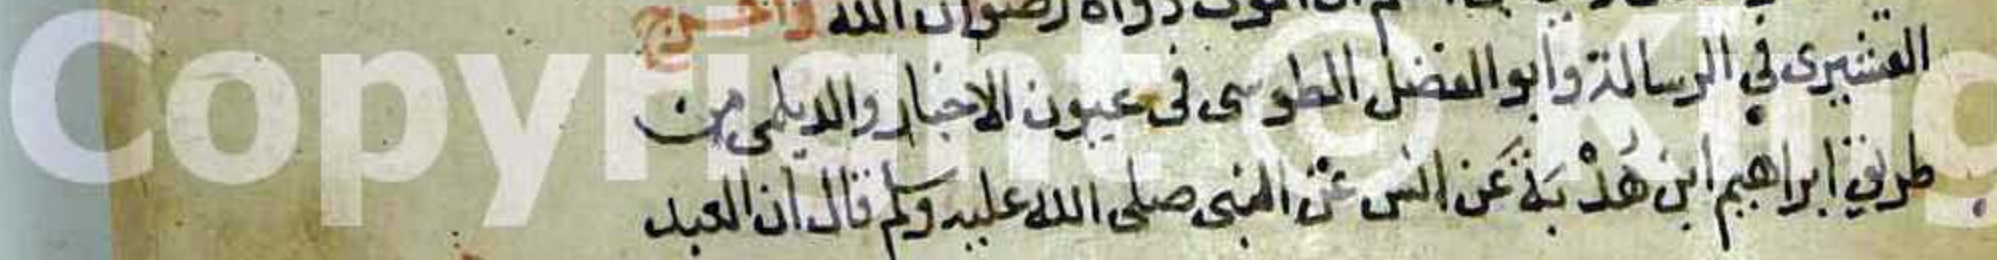 رضوان الله واخرج
القشيرى في الرسالة وابو الفضل الطوسى فى عيون الاخبار والديلمى من
طريق ابراهيم ابن هُدْبَة عَن انس عَن النبى صلى الله عليه وسلم قال ان العبد
Copyright © King